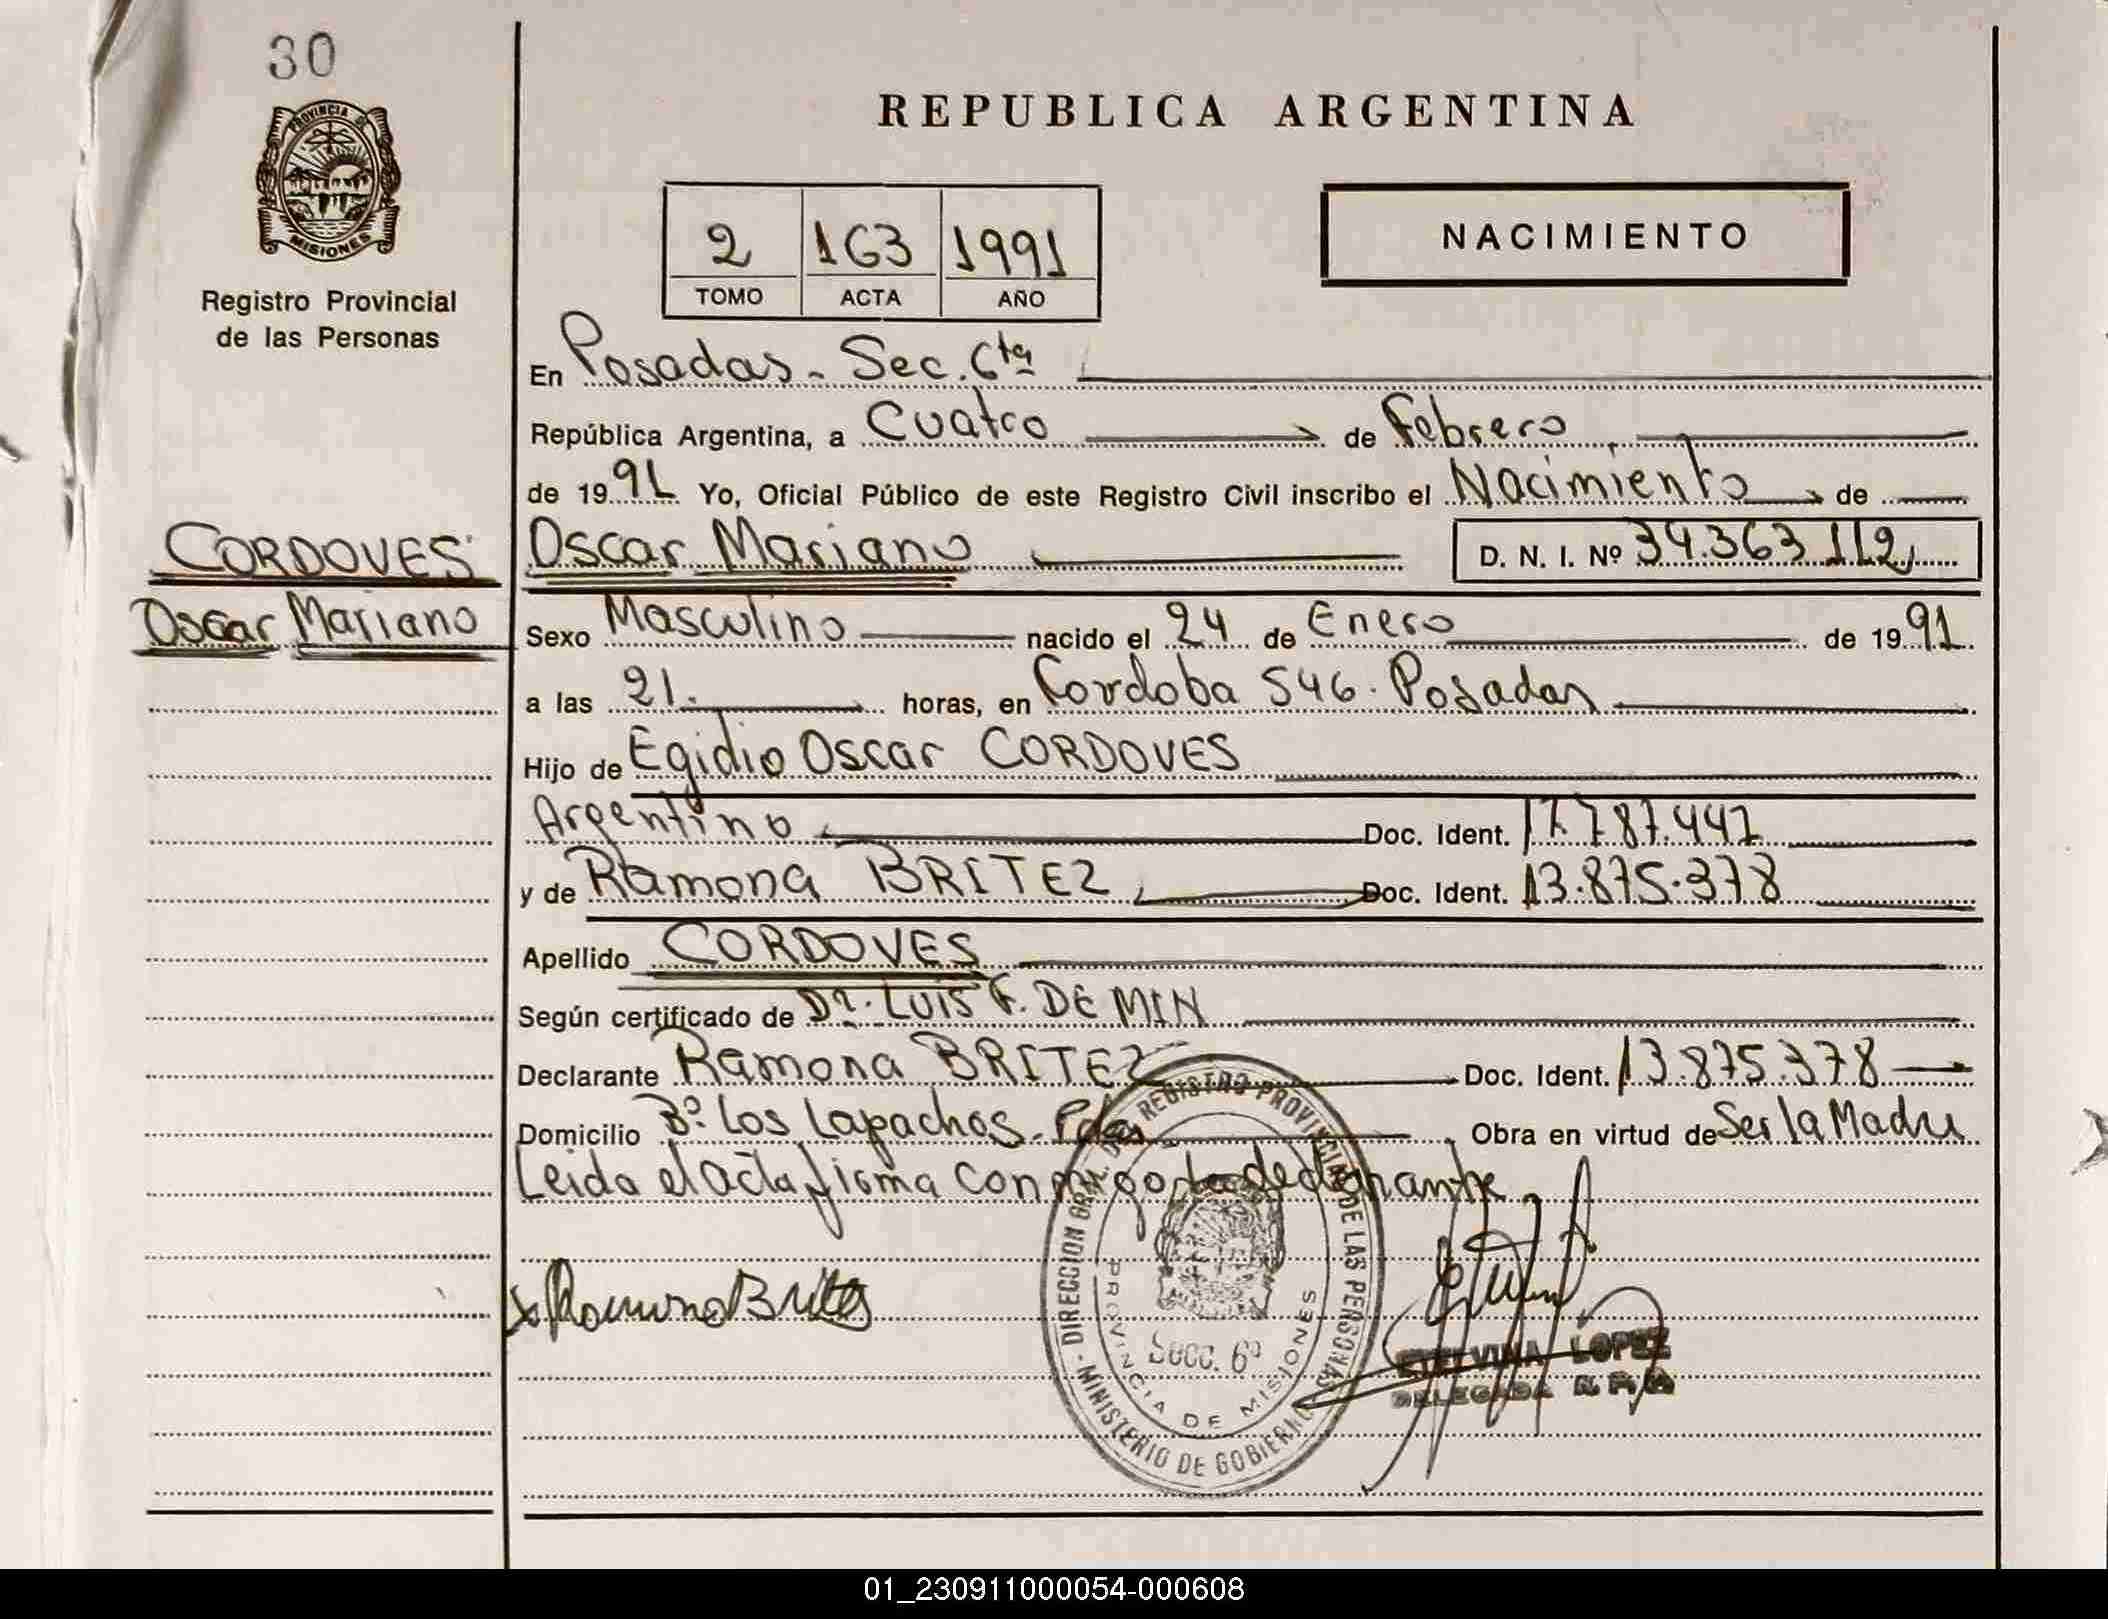 30
PROVINCIA DE
MISIONES
Registro Provincial
de las Personas
CORDOVES
Oscar Mariano
REPUBLICA ARGENTINA
2 163 1991
TOMO ACTA AÑO
NACIMIENTO
En Posadas - Sec. 6ta
República Argentina, a Cuatro de Febrero
de 1991 Yo, Oficial Público de este Registro Civil inscribo el Nacimiento de
Oscar Mariano D. N. I. Nº 34.363.112
Sexo Masculino nacido el 24 de Enero de 1991
a las 21. horas, en Cordoba 546. Posadas
Hijo de Egidio Oscar CORDOVES
Argentino Doc. Ident. 17.787.447
y de Ramona BRITEZ Doc. Ident. 13.875.378
Apellido CORDOVES
Según certificado de Dr. LUIS F. DE MIN
Declarante Ramona BRITEZ Doc. Ident. 13.875.378
Domicilio Bº Los Lapachos - Pdas Obra en virtud de Ser la Madre
Leida el acta firma conmigo la declarante
Ramona Britez
MINISTERIO DE GOBIERNO - DIRECCION GRAL. DEL REGISTRO PROVINCIAL DE LAS PERSONAS
Secc. 6º
PROVINCIA DE MISIONES
ETELVINA LOPEZ
DELEGADA R. P. P.
01_230911000054-000608